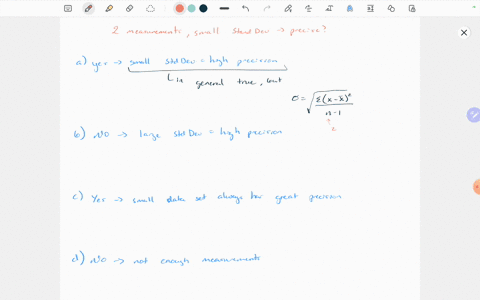 2 measurements, small Stand Dev → precise?
a) yes → small Std Dev = high precision
↳ in general true, but
σ = √ Σ(x - x̄)² / n - 1
↑
2
b) No → large Std Dev = high precision
c) Yes → small data set always has great precision
d) No → not enough measurements